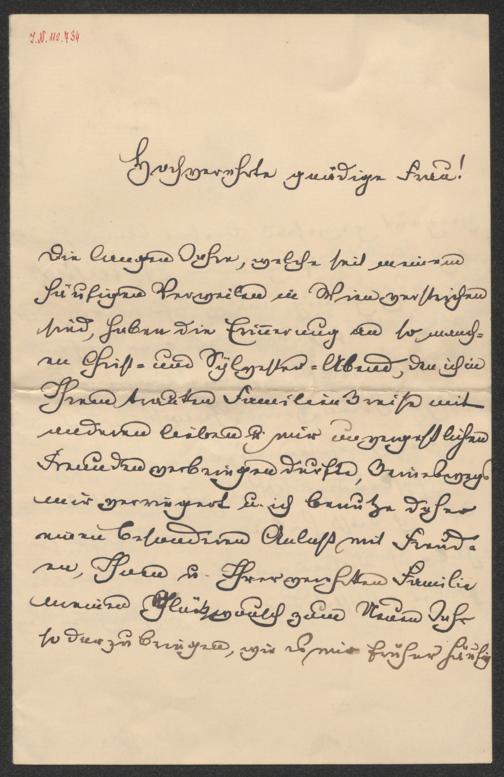 I.N. 110.734
Hochverehrte gnädige Frau!
Die langen Jahre, welche seit meinem
häufigen Verweilen in Wien verstrichen
sind, haben die Erinnerung an so manch-
en Christ- und Sylvester-Abend, den ich in
Ihrem trauten Familienkreise mit
anderen lieben & mir unvergeßlichen
Freunden verbringen durfte, keineswegs
mir verringert u. ich benutze daher
einen besonderen Anlaß mit Freud-
en, Ihnen u. Ihrer verehrten Familie
meinen Glückwunsch zum Neuen Jahr
so darzubringen, wie es mir früher häufig